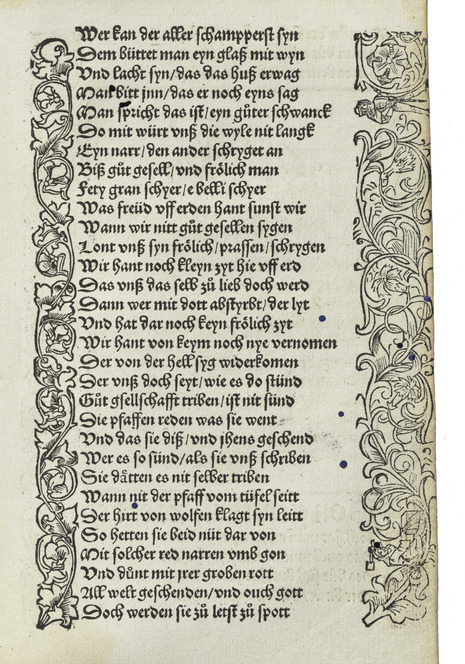 Wer kan der aller schampperst syn
Dem büttet man eyn glaß mit wyn
Vnd lacht syn/das das huß erwag
Man bitt jnn/das er noch eyns sag
Man spricht das ist/eyn gůter schwanck
Do mit würt vnß die wyle nit langk
Eyn narr/den ander schryget an
Biß gůt gesell/vnd frölich man
Fety gran schyer/e belli schyer
Was freüd vff erden hant sunst wir
Wann wir nitt gůt gesellen sygen
Lont vnß syn frölich/prassen/schrygen
Wir hant noch kleyn zyt hie vff erd
Das vnß das selb zů lieb doch werd
Dann wer mit dott abstyrbt/der lyt
Vnd hat dar noch keyn frölich zyt
Wir hant von keym noch nye vernomen
Der von der hell syg widerkomen
Der vnß doch seyt/wie es do stünd
Gůt gsellschafft triben/ist nit sünd
Die pfaffen reden was sie went
Vnd das sie diß/vnd jhens geschend
Wer es so sünd/als sie vnß schriben
Sie dätten es nit selber triben
Wann nit der pfaff vom tüfel seitt
Der hirt von wolfen klagt syn leitt
So hetten sie beid nüt dar von
Mit solcher red narren vmb gon
Vnd důnt mit jrer groben rott
All welt geschenden/vnd ouch gott
Doch werden sie zů letst zů spott